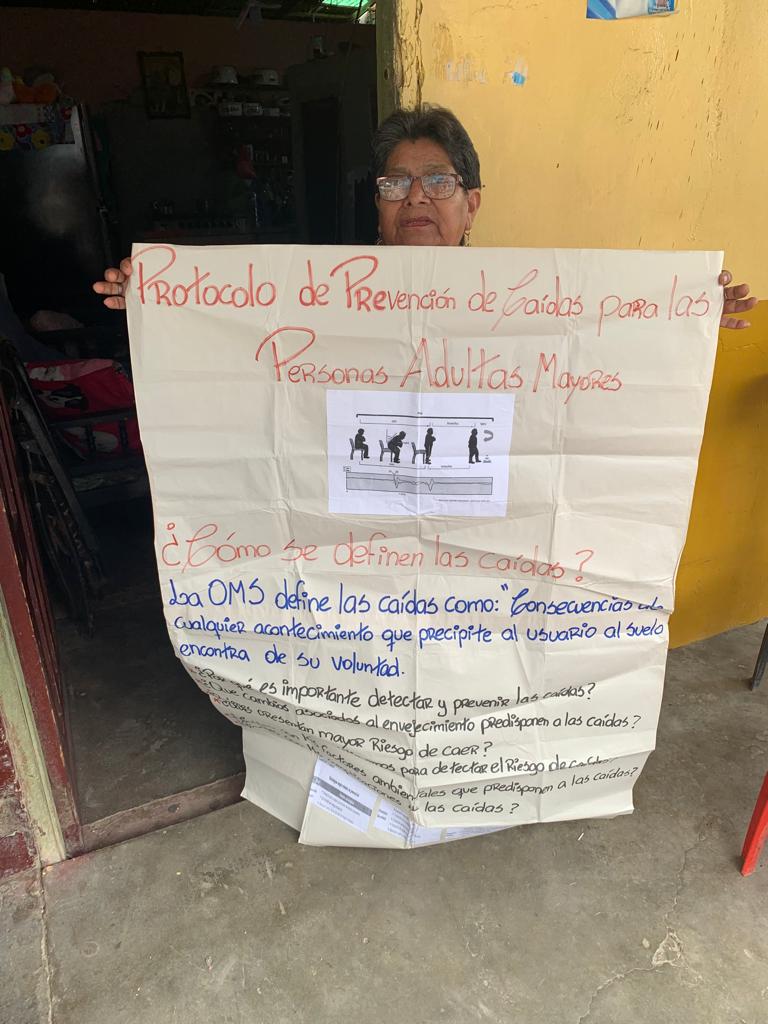 Protocolo de Prevención de Caídas para las
Personas Adultas Mayores
¿Cómo se definen las caídas?
La OMS define las caídas como: "Consecuencias de
cualquier acontecimiento que precipite al usuario al suelo
encontra de su voluntad.
¿Por qué es importante detectar y prevenir las caídas?
¿Que cambios asociados al envejecimiento predisponen a las caídas?
presentan mayor Riesgo de caer?
para detectar el Riesgo de caídas
factores ambientales que predisponen a las caídas?
las caídas?